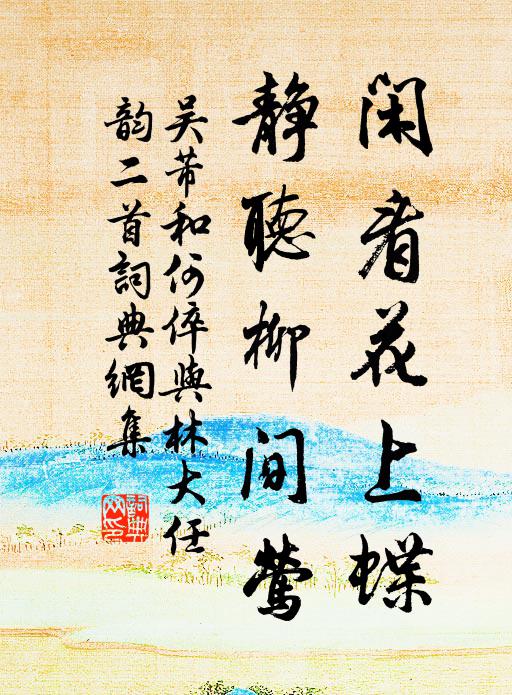 闲看花上蝶
静聽柳间莺
吴芾和何倅與林大任
韵二首詞典網集
詞典网印